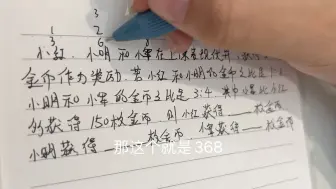 3
1 2
3 6 8
小红、小明和小军在上课
金币作为奖励.其小红和小明的金币之比是1:
小明和小军的金币之比是3:4.其中小军比小红
多获得150枚金币 则小红获得 枚金币
小明获得 枚金币 小军获得 枚金币
那这个就是368